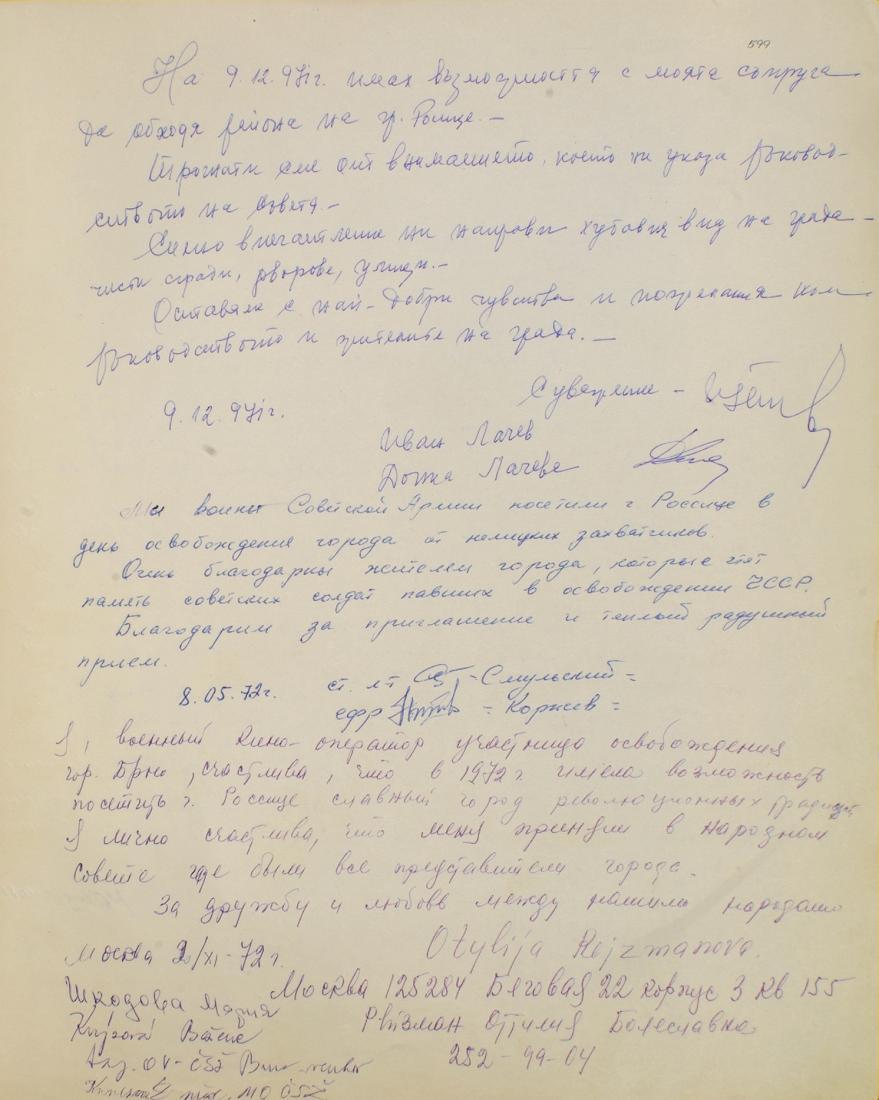 599
На 9.12.971г. имах възможността с моята съпруга
да обходя района на гр. Росице. —
Трогнати сме от вниманието, което ни указа ръковод-
ството на Съвета. —
Силно впечатление ни направи хубавия вид на града —
чисти сгради, дворове, улици. —
Оставяме с най-добри чувства и пожелания към
ръководството и жителите на града. —
9.12.971г.
Иван Лачев
Донка Лачева
Мы воины Советской Армии посетили г Россице в
день освобождения города от немецких захватчиков.
Очень благодарны жителям города, которые чтят
память советских солдат павших в освобождении ЧССР.
Благодарим за приглашение и теплый радушный
прием.
8.05.72г.
ст. л-т - Смульский =
ефр = Коржев =
Я, военный кино-оператор участница освобождения
гор. Брно, счастлива, что в 1972 г. имела возможность
посетить г. Россице славный город революционных традиций
Я лично счастлива, что меня приняли в Народном
совете где были все представители города.
За дружбу и любовь между нашими народами
Otylija Rejzmanova.
Москва 2/XI-72г.
Москва 125284 Беговая 22 корпус 3 кв 155
Шкодова Мария
Рейзман Оттилия Болеславна
252-99-04